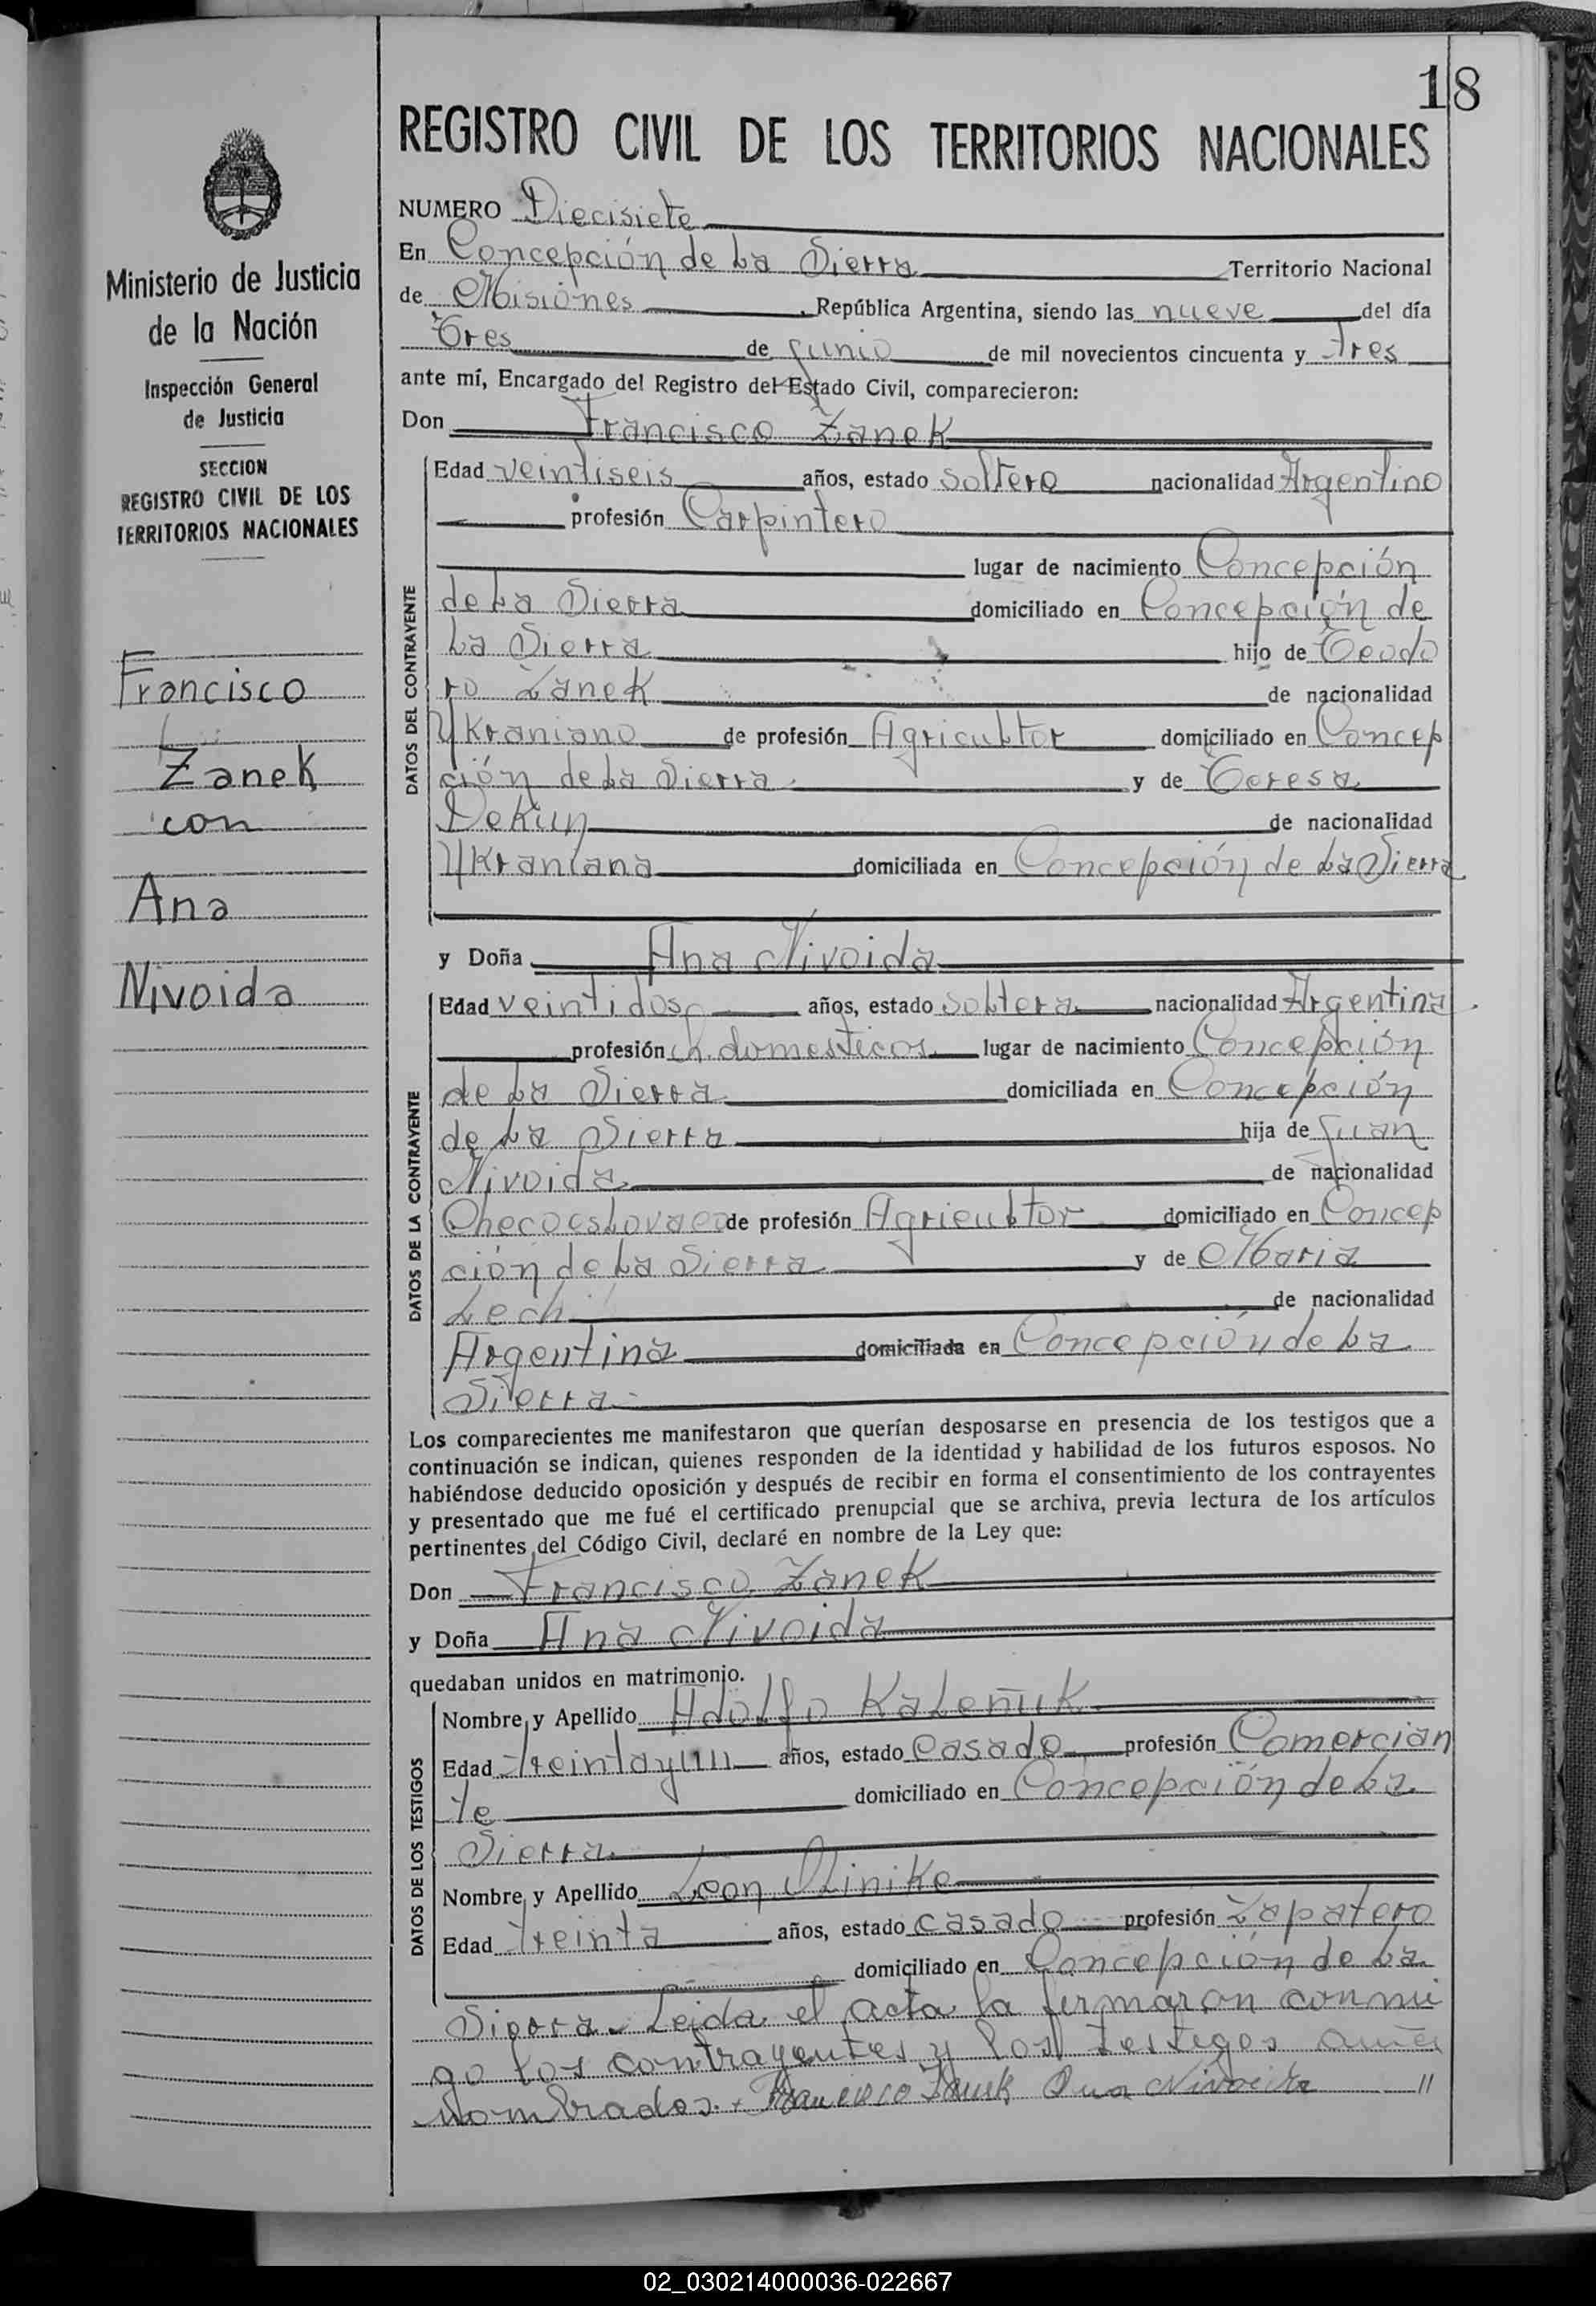 18
REGISTRO CIVIL DE LOS TERRITORIOS NACIONALES
Ministerio de Justicia
de la Nación
Inspección General
de Justicia
SECCION
REGISTRO CIVIL DE LOS
TERRITORIOS NACIONALES
Francisco
Zanek
con
Ana
Nivoida
NUMERO Diecisiete
En Concepción de La Sierra Territorio Nacional
de Misiones, República Argentina, siendo las nueve del día
Tres de junio de mil novecientos cincuenta y tres
ante mí, Encargado del Registro del Estado Civil, comparecieron:
Don Francisco Zanek
DATOS DEL CONTRAYENTE
Edad veintiseis años, estado soltero nacionalidad Argentino
profesión Carpintero
lugar de nacimiento Concepción
de La Sierra domiciliado en Concepción de
La Sierra hijo de Teodo
ro Zanek de nacionalidad
Ukraniano de profesión Agricultor domiciliado en Concep
ción de La Sierra y de Teresa
Dekun de nacionalidad
Ukraniana domiciliada en Concepción de La Sierra
y Doña Ana Nivoida
DATOS DE LA CONTRAYENTE
Edad veintidos años, estado soltera nacionalidad Argentina
profesión q. domesticos lugar de nacimiento Concepción
de La Sierra domiciliada en Concepción
de La Sierra hija de Juan
Nivoida de nacionalidad
Checoeslovaco de profesión Agricultor domiciliado en Concep
ción de La Sierra y de Maria
Lech de nacionalidad
Argentina domiciliada en Concepción de La
Sierra
Los comparecientes me manifestaron que querían desposarse en presencia de los testigos que a
continuación se indican, quienes responden de la identidad y habilidad de los futuros esposos. No
habiéndose deducido oposición y después de recibir en forma el consentimiento de los contrayentes
y presentado que me fué el certificado prenupcial que se archiva, previa lectura de los artículos
pertinentes del Código Civil, declaré en nombre de la Ley que:
Don Francisco Zanek
y Doña Ana Nivoida
quedaban unidos en matrimonio.
DATOS DE LOS TESTIGOS
Nombre y Apellido Adolfo Kaleñuk
Edad treintayun años, estado Casado profesión Comercian
te domiciliado en Concepción de La
Sierra
Nombre y Apellido Leon
Edad treinta años, estado casado profesión Zapatero
domiciliado en Concepción de La
Sierra. Leida el acta la firmaron conmi
go los contrayentes y los testigos
nombrados. Francisco Zanek Ana Nivoida //
02_030214000036-022667